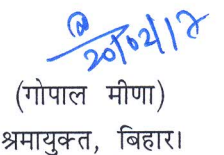 20/02/17
(गोपाल मीणा)
श्रमायुक्त, बिहार।